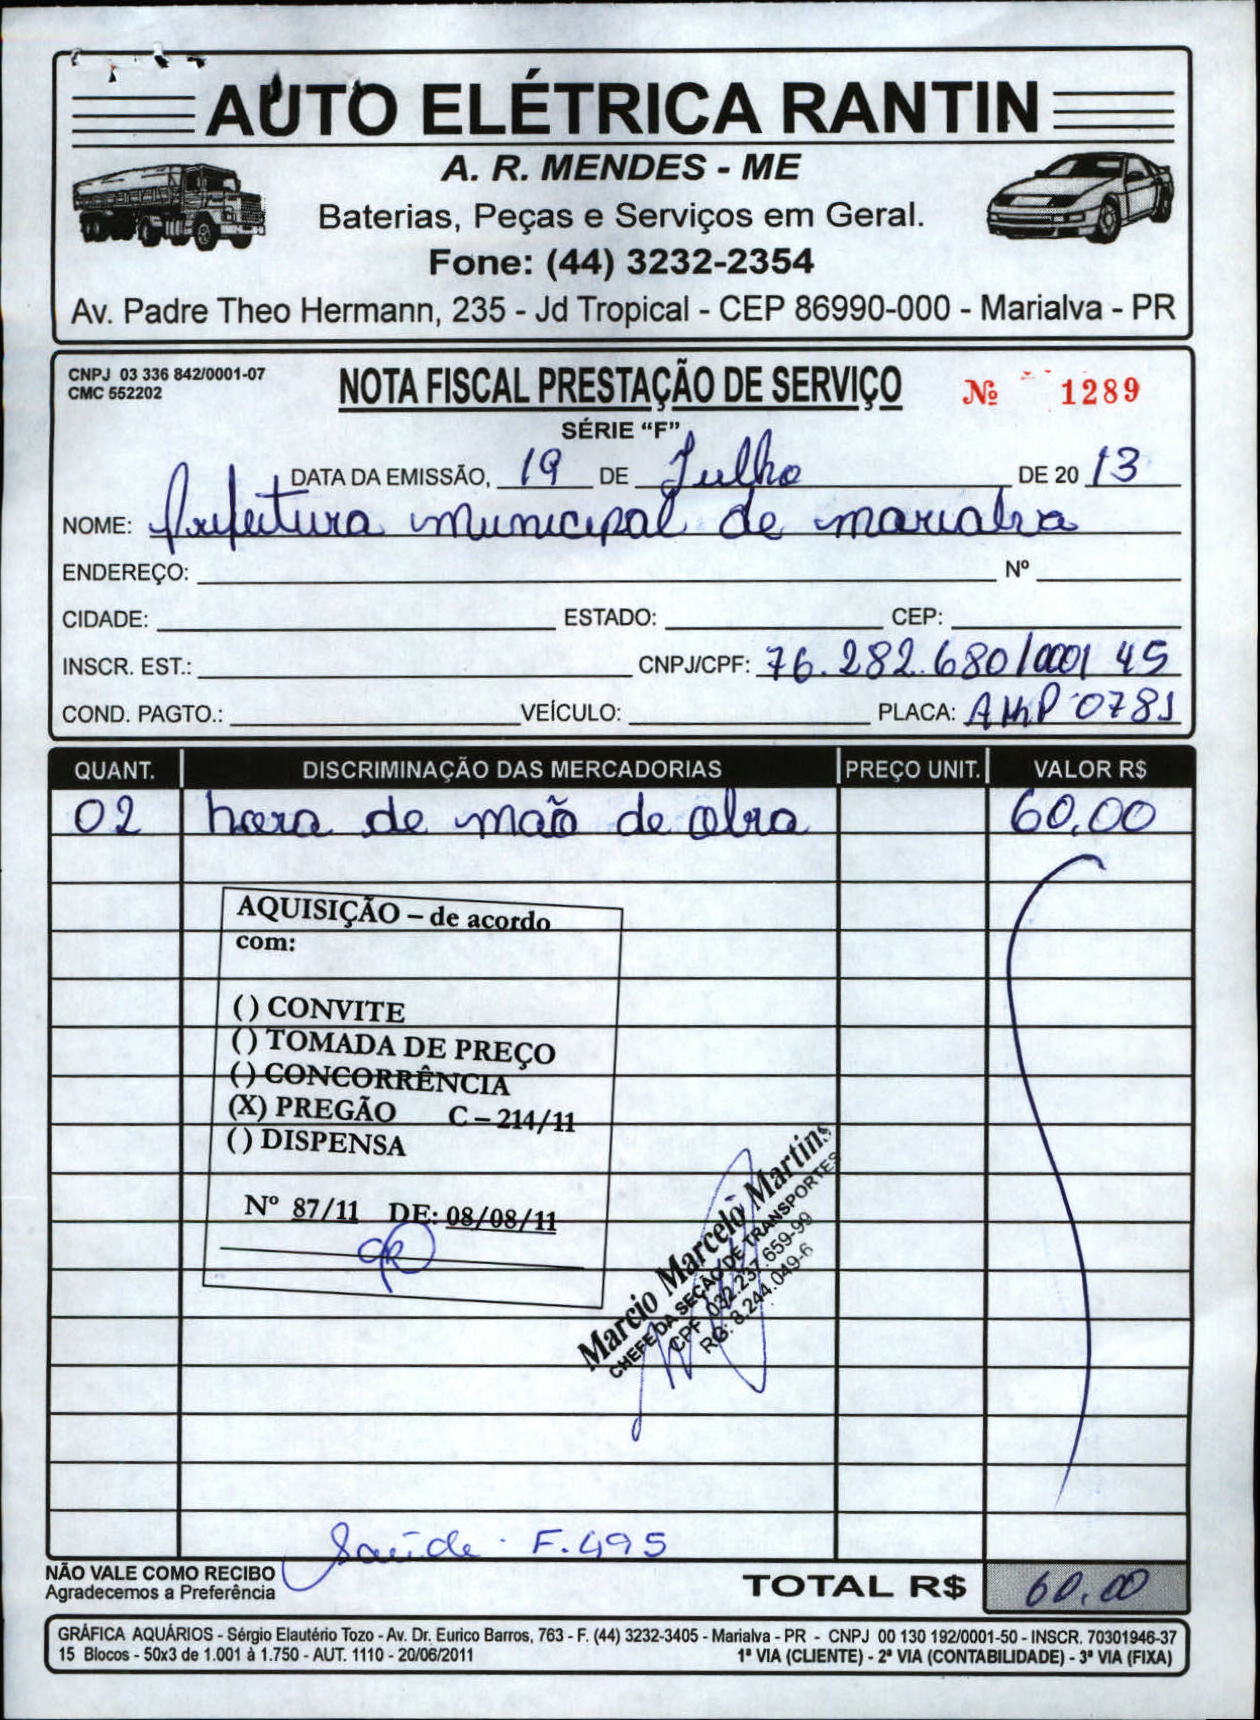 AUTO ELÉTRICA RANTIN
A. R. MENDES - ME
Baterias, Peças e Serviços em Geral.
Fone: (44) 3232-2354
Av. Padre Theo Hermann, 235 - Jd Tropical - CEP 86990-000 - Marialva - PR
CNPJ 03 336 842/0001-07
CMC 552202
NOTA FISCAL PRESTAÇÃO DE SERVIÇO
Nº 1289
SÉRIE “F”
DATA DA EMISSÃO, 19 DE Julho DE 20 13
NOME: Prefeitura municipal de marialva
ENDEREÇO: Nº
CIDADE: ESTADO: CEP:
INSCR. EST.: CNPJ/CPF: 76.282.680/0001 45
COND. PAGTO.: VEÍCULO: PLACA: 0781
QUANT. DISCRIMINAÇÃO DAS MERCADORIAS PREÇO UNIT. VALOR R$
02 hora de mão de obra 60,00
AQUISIÇÃO – de acordo
com:
( ) CONVITE
( ) TOMADA DE PREÇO
( ) CONCORRÊNCIA
(X) PREGÃO C – 214/11
( ) DISPENSA
Nº 87/11 DE: 08/08/11
Marcio Marcelo Martins
CHEFE DA SEÇÃO DE TRANSPORTES
CPF 032.237.659-99
RG: 8.244.049-6
Saúde - F.495
NÃO VALE COMO RECIBO
Agradecemos a Preferência
TOTAL R$ 60,00
GRÁFICA AQUÁRIOS - Sérgio Elautério Tozo - Av. Dr. Eurico Barros, 763 - F. (44) 3232-3405 - Marialva - PR - CNPJ 00 130 192/0001-50 - INSCR. 70301946-37
15 Blocos - 50x3 de 1.001 à 1.750 - AUT. 1110 - 20/06/2011 1ª VIA (CLIENTE) - 2ª VIA (CONTABILIDADE) - 3ª VIA (FIXA)